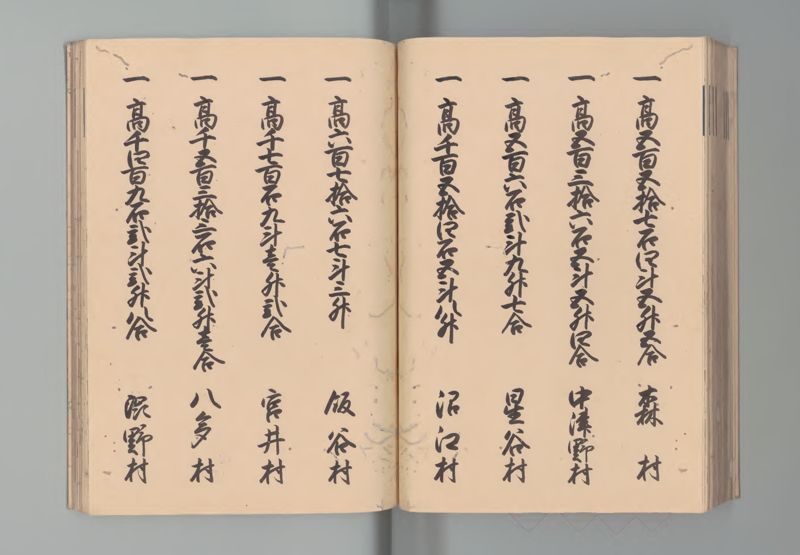 一 高五百五拾七石四斗五升五合 森村
一 高五百三拾六石五斗五升四合 中津野村
一 高五百六石弐斗九升七合 星谷村
一 高千百五拾四石五斗八升 沼江村
一 高六百七拾六石七斗三升 飯谷村
一 高千七百石九斗壱升弐合 宮井村
一 高千五百三拾三石六斗弐升壱合 八多村
一 高千四百九石弐斗弐升八合 渋野村